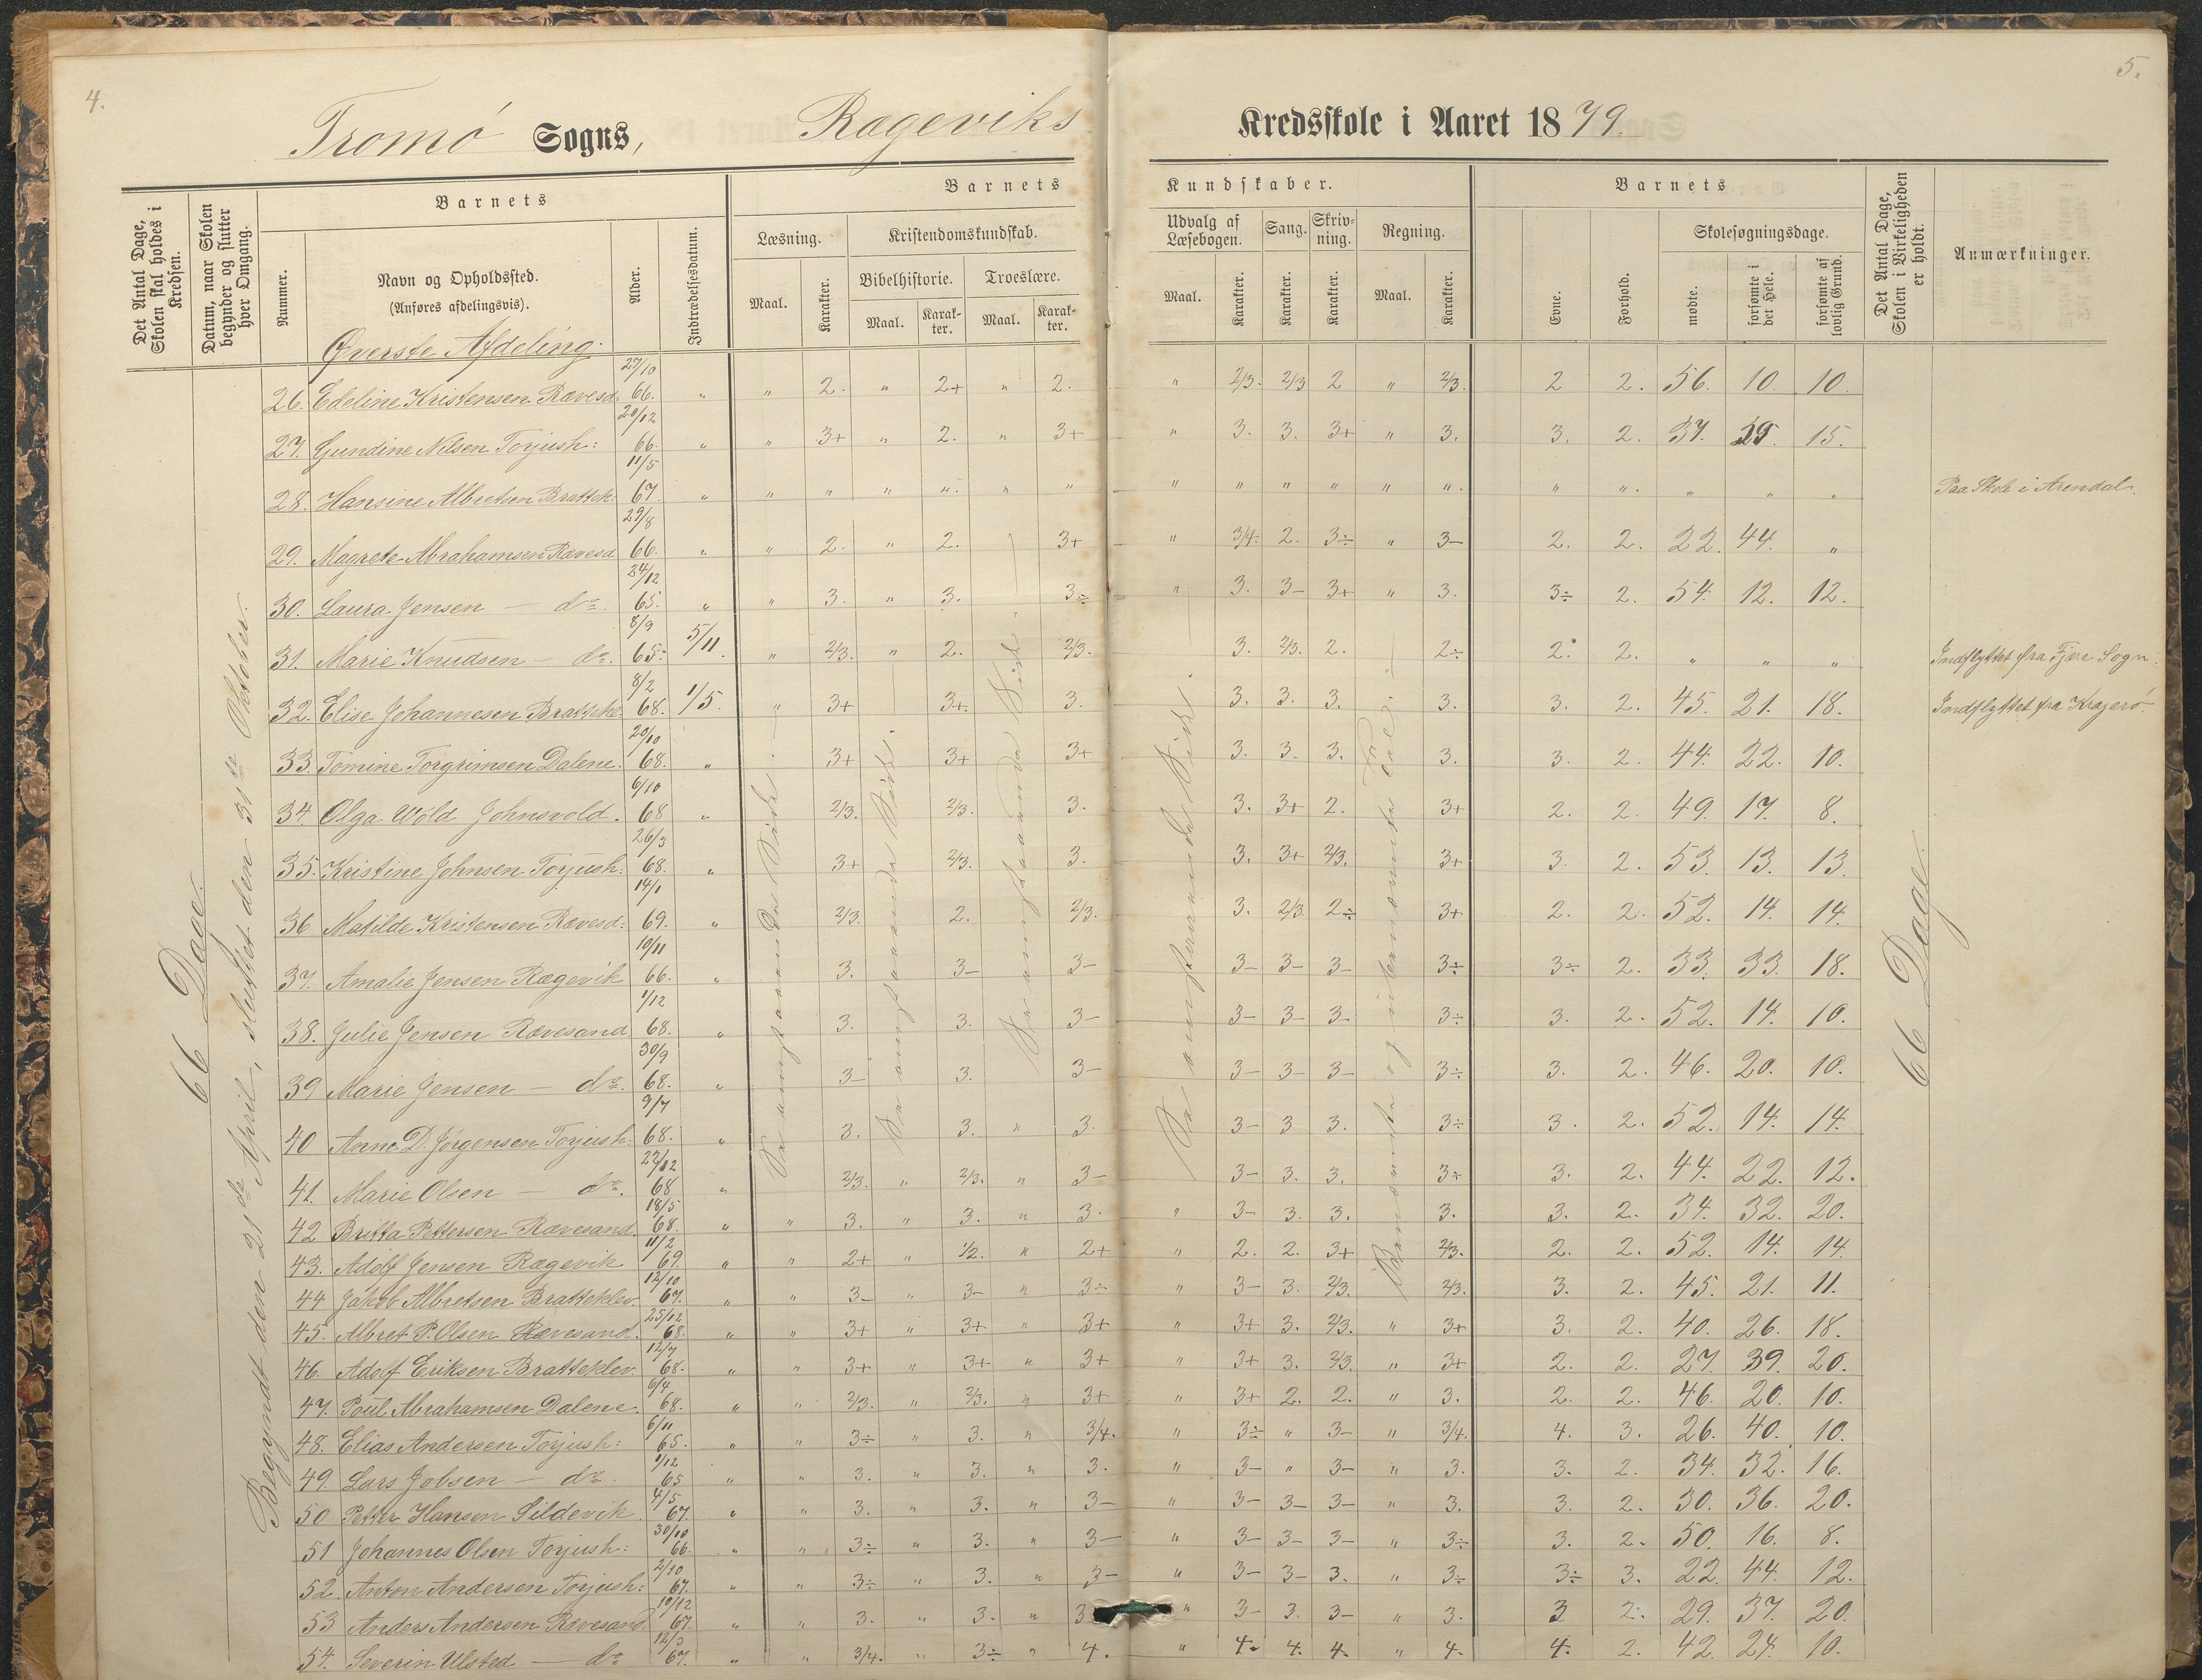 4.
5.
Tromø Sogns, Rægeviks Kredsskole i Aaret 1879.
Det Antal Dage, Skolen skal holdes i Kredsen.
Datum, naar Skolen begynder og slutter hver Omgang.
Barnets
Nummer.
Navn og Opholdssted.
(Anføres afdelingsvis).
Alder.
Indtrædelsesdatum.
Barnets Kundskaber.
Læsning.
Maal.
Karakter.
Kristendomskundskab.
Bibelhistorie.
Maal.
Karakter.
Troeslære.
Maal.
Karakter.
Udvalg af Læsebogen.
Maal.
Karakter.
Sang.
Karakter.
Skrivning.
Karakter.
Regning.
Maal.
Karakter.
Barnets
Evne.
Forhold.
Skolesøgningsdage.
mødte.
forsømte i det Hele.
forsømte af lovlig Grund.
Det Antal Dage, Skolen i Virkeligheden er holdt.
Anmærkninger.
Øverste Afdeling.
66 Dage.
Begyndt den 21de April, sluttet den 31te Oktober.
26. Edeline Kristensen Rævesd. 27/10 66. " " 2. " 2+ " 2. " 2/3. 2/3 2 " 2/3. 2 2. 56. 10. 10.
27. Gundine Nilsen Torjush: 20/12 66. " " 3+ " 2. " 3+ " 3. 3. 3+ " 3. 3. 2. 37. 29. 15.
28. Hansine Albretsen Brattek: 11/5 67. " " " " " " " " " " " " " " " " " " Paa Skole i Arendal.
29. Magrete Abrahamsen Rævesd 29/8 66. " " 2. " 2. 3+ " 3/4. 2. 3÷ " 3- 2. 2. 22. 44. "
30. Laura Jensen — do. 24/12 65. " " 3. " 3. 3÷ " 3. 3- 3+ " 3. 3÷ 2. 54. 12. 12.
31. Marie Knudsen — do. 8/9 65. 5/11. " 2/3. " 2. 2/3. 3. 2/3. 2. 2÷ 2. 2. " " " Indflyttet fra Fjære Sogn.
32. Elise Johannesen Brattekl. 8/2 68. 1/5. " 3+ 3+. 3. 3. 3. 3. 3. 3. 2. 45. 21. 18. Indflyttet fra Kragerø.
33. Tomine Torgrimsen Dalene. 20/10 68. " 3+ 3+ 3+ 3. 3. 3. 3. 3. 2. 44. 22. 10.
34. Olga Wold Johnsvold. 6/10 68 " 2/3. 2/3. 3. 3. 3+ 2. 3+ 2. 2. 49. 17. 8.
35. Kristine Johnsen Torjush: 26/3 68. " 3+ 2/3. 3. 3. 3+ 2/3. 3+ 3. 2. 53. 13. 13.
36 Matilde Kristensen Rævesd: 14/1 69. " 2/3. 2. 2/3. 3. 2/3. 2÷ 3+ 2. 2. 52. 14. 14.
37. Amalie Jensen Rægevik 10/11 66. " 3. 3- 3- 3- 3- 3- 3÷ 3÷ 2. 33. 33. 18.
38. Julie Jensen Rævesand 1/12 68. " 3. 3. 3- 3- 3- 3. 3÷ 3. 2. 52. 14. 10.
39 Marie Jensen — do. 30/9 68. " 3- 3. 3- 3- 3- 3- 3÷ 3. 2. 46. 20. 10.
40 Anne D. Jørgensen Torjush. 9/7 68. " 3. 3. " 3. 3- 3 3. 3÷ 3. 2. 52. 14. 14.
41. Marie Olsen — do. 22/12 68 " 2/3. " 2/3. " 3- 3- 3. 3. 3÷ 3. 2. 44. 22. 12.
42 Britta Pettersen Rævesand. 18/5 68. " " 3. " 3. " 3. " 3- 3. 3. 3. 3. 2. 34. 32. 20.
43. Adolf Jensen Rægevik 11/2 69. " " 2+ " 1/2. " 2+ " 2. 2. 3+ 2/3. 2. 2. 52. 14. 14.
44 Jakob Albretsen Bratteklev. 12/10 67. " " 3- " 3- " 3÷ " 3- 3. 2/3. 2/3. 3. 2. 45. 21. 11.
45. Albret P. Olsen Rævesand. 25/12 68. " " 3+ " 3+ " 3+ " 3+ 3. 2/3. " 3+ 3. 2. 40. 26. 18.
46. Adolf Eriksen Bratteklev. 12/7 68. " " 3+ " 3+ " 3+ " 3+ 3. 2/3. " 3+ 2. 2. 27. 39. 20.
47. Poul Abrahamsen Dalene. 6/4 68. " " 2/3. " 2/3. " 3+ " 3+ 2. 2. " 3. 2. 2. 46. 20. 10.
48. Elias Andersen Torjush: 6/11 65. " " 3÷ " 3. " 3/4. " 3÷ " 3- " 3/4. 4. 3. 26. 40. 10.
49. Lars Jobsen — do. 1/12 65 " " 3. " 3. " 3. " 3- " 3- " 3. 3. 2. 34. 32. 16.
50 Petter Hansen Sildevik 4/5 67. " " 3. " 3. " 3- " 3- 3- 3- " 3. 3. 2. 30. 36. 20.
51 Johannes Olsen Torjush: 30/10 66. " " 3÷ " 3. " 3- " 3- 3- 3- " 3÷ 3. 2. 50. 16. 8.
52. Anton Andersen Torjush: 2/10 67. " " 3÷ " 3. " 3- " 3- 3- 3. " 3÷ 3÷ 3. 22. 44. 12.
53 Anders Andersen Rævesand. 10/12 67. " " 3. " 3. " 3 " 3- 3. 3- " 3. 3 2. 29. 37. 20.
54. Severin Ulsted — do 12/3 67. " " 3/4. " 3÷ " 4. " 4. 4. 4. " 4. 4. 2. 42. 24. 10.
66 Dage.